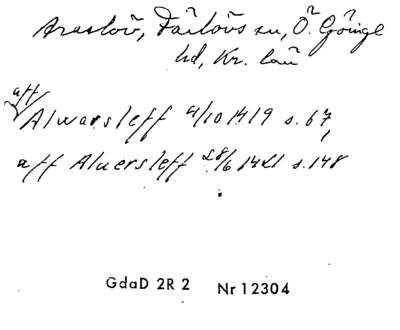 Araslöv, Färlövs sn, Ö. Göinge
hd, Kr. län
aff
Alwarsleff 4/10 1419 s. 67,
aff Aluersleff 28/6 1421 s. 148
GdaD 2R 2 Nr 12304